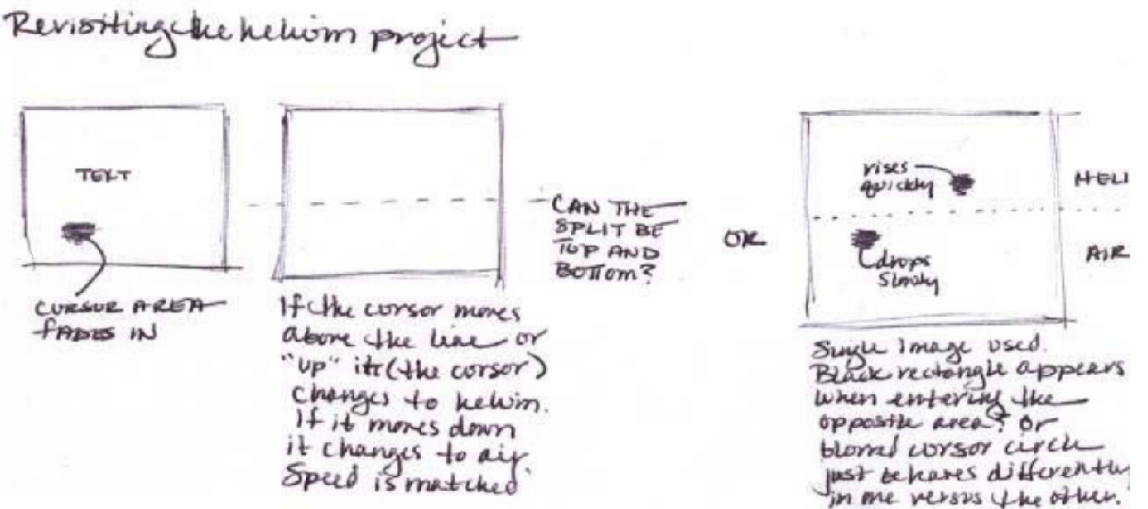 Revisiting the helium project
TEXT
CURSOR AREA
FADES IN
If the cursor moves
above the line or
"up" it (the cursor)
changes to helium.
If it moves down
it changes to air.
Speed is matched
CAN THE
SPLIT BE
TOP AND
BOTTOM?
OR
rises
quickly
HELI
drops
slowly
AIR
Single image used.
Black rectangle appears
when entering the
opposite area? or
blurred cursor circle
just behaves differently
in one versus the other.